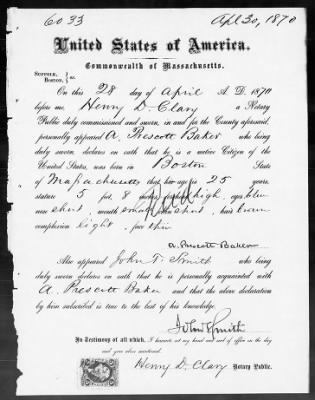 6033
Apl 30, 1870
United States of America.
Commonwealth of Massachusetts.
SUFFOLK,
BOSTON, } ss.
On this 28 day of April A. D. 1870
before me, Henry D. Clary a Notary
Public duly commissioned and sworn, in and for the County aforesaid,
personally appeared A. Prescott Baker who being
duly sworn, declares on oath that he is a native Citizen of the
United States, was born in Boston State
of Massachusetts that his age is 25 years,
stature 5 feet 8 inches high, eyes blue
nose short, mouth small chin short, hair brown
complexion light, face thin
A. Prescott Baker
Also appeared John T. Smith who being
duly sworn declares on oath that he is personally acquainted with
A. Prescott Baker and that the above declaration
by him subscribed is true to the best of his knowledge.
John T Smith
In Testimony of all which, I hereunto set my hand and seal of office on the day
and year above mentioned.
Henry D. Clary Notary Public.